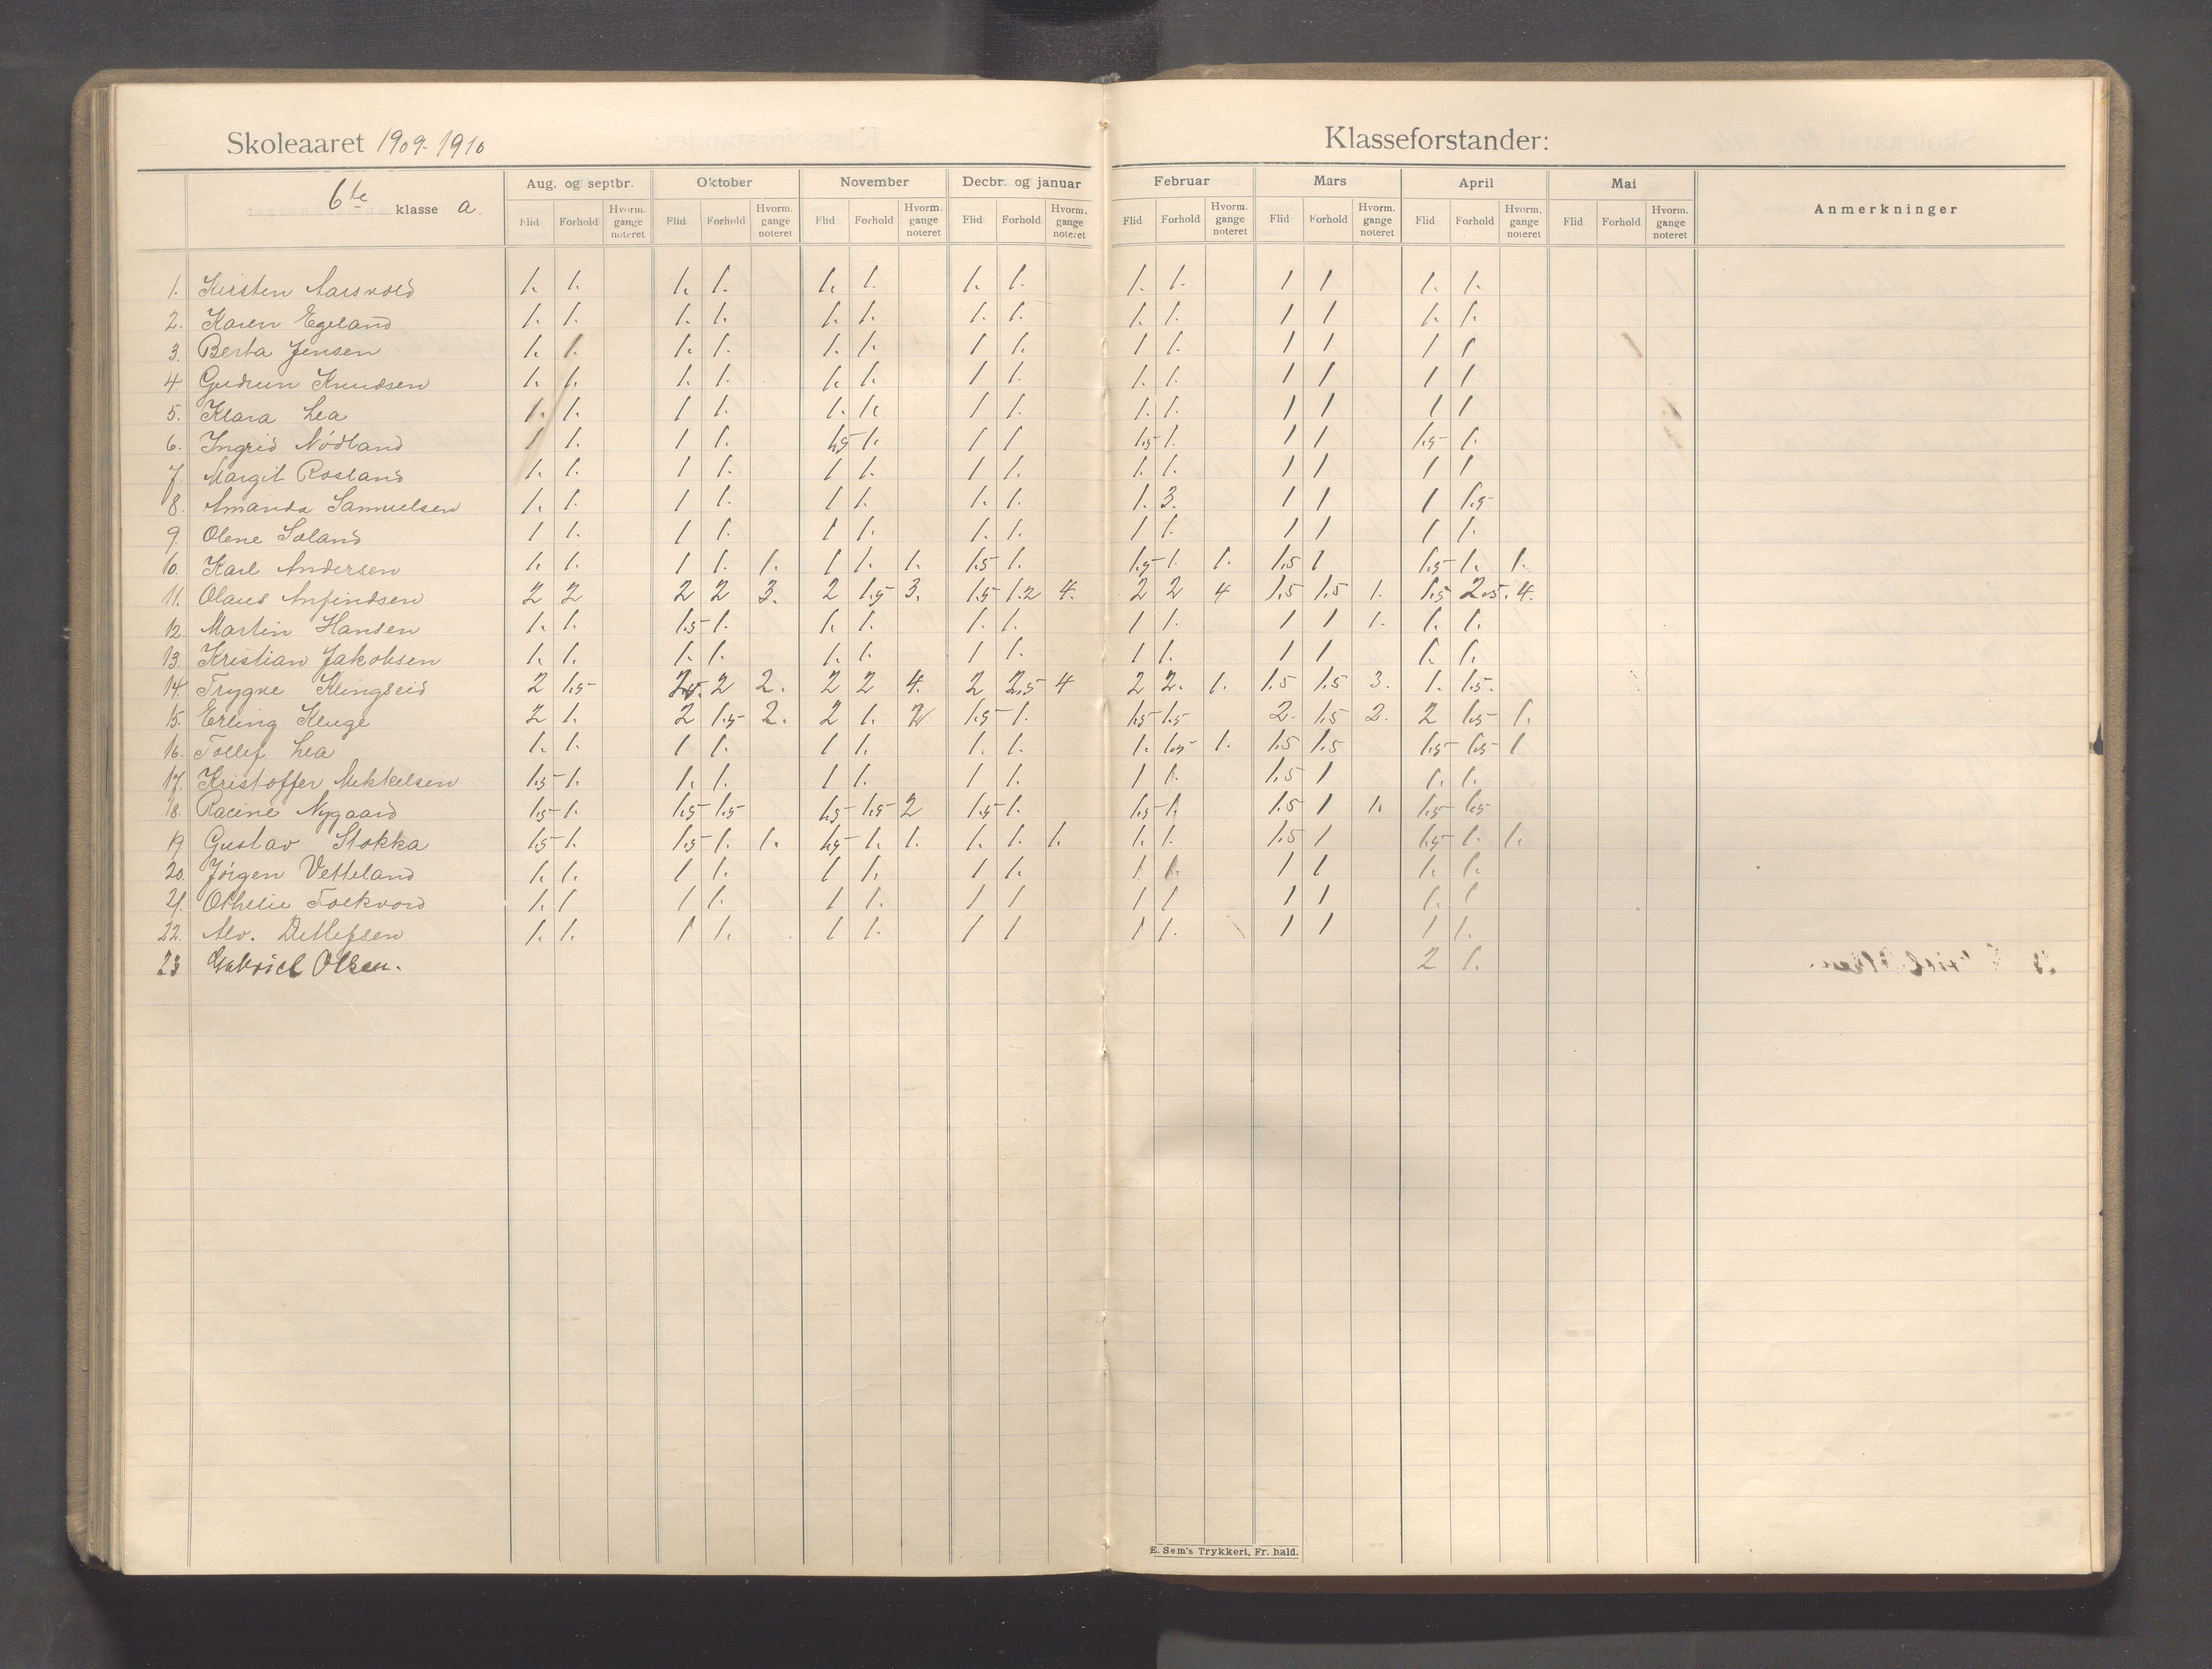 Skoleaaret 1909-1910 Klasseforstander:
6te klasse a. Aug. og septbr. Oktober November Decbr. og januar Februar Mars April Mai Anmerkninger
Flid Forhold Hvorm. gange noteret Flid Forhold Hvorm. gange noteret Flid Forhold Hvorm. gange noteret Flid Forhold Hvorm. gange noteret Flid Forhold Hvorm. gange noteret Flid Forhold Hvorm. gange noteret Flid Forhold Hvorm. gange noteret Flid Forhold Hvorm. gange noteret
1. Kirsten Aarsvold 1. 1. 1. 1. 1. 1. 1. 1. 1. 1. 1 1 1. 1.
2. Karen Egeland 1. 1. 1. 1. 1. 1. 1. 1. 1. 1. 1 1 1. 1.
3. Berta Jensen 1. 1. 1. 1. 1. 1. 1 1. 1 1. 1 1 1 1
4. Gudrun Knudsen 1. 1. 1. 1. 1. 1. 1 1. 1. 1. 1 1 1 1
5. Klara Lea 1. 1. 1 1. 1. 1. 1 1. 1. 1. 1 1 1 1
6. Ingrid Nödland 1 1. 1 1. 1.5 1. 1 1 1.5 1. 1 1 1.5 1.
7. Margit Rosland 1. 1. 1 1. 1 1. 1 1. 1. 1. 1 1 1 1
8. Amanda Samuelsen 1. 1. 1 1. 1 1. 1. 1. 1. 3. 1 1 1 1.5
9. Olene Soland 1 1. 1 1. 1 1. 1. 1. 1 1. 1 1 1 1.
10. Karl Andersen 1. 1. 1 1. 1. 1 1. 1. 1.5 1. 1.5 1. 1. 1.5 1 1.5 1. 1.
11. Olaus Anfindsen 2 2 2 2 3. 2 1.5 3. 1.5 1.2 4. 2 2 4 1.5 1.5 1. 1.5 2.5. 4.
12. Martin Hansen 1. 1. 1.5 1. 1. 1. 1. 1. 1 1. 1 1 1. 1. 1.
13. Kristian Jakobsen 1. 1. 1. 1. 1. 1. 1 1. 1 1. 1 1 1. 1.
14. Trygve Klingseid 2 1.5 2.5. 2 2. 2 2 4. 2 2.5 4 2 2. 1. 1.5 1.5 3. 1. 1.5.
15. Erling Kluge 2 1. 2 1.5 2. 2 1. 2 1.5 1. 1.5 1.5 2. 1.5 2. 2 1.5 1.
16. Tollef Lea 1. 1. 1 1. 1 1. 1. 1. 1. 1.5 1. 1.5 1.5 1.5 1.5 1
17. Kristoffer Mikkelsen 1.5 1. 1. 1. 1 1. 1 1. 1 1. 1.5 1 1. 1.
18. Racine Nygaard 1.5 1. 1.5 1.5 1.5 1.5 2 1.5 1. 1.5 1 1.5 1 1. 1.5 1.5
19 Gustav Stokka 1.5 1. 1.5 1. 1. 1.5 1. 1. 1. 1. 1. 1. 1. 1.5 1 1.5 1. 1.
20. Jörgen Vetteland 1. 1. 1 1. 1 1. 1 1. 1 1. 1 1 1. 1.
21. Othelie Folkvord 1. 1 1 1. 1 1. 1 1 1 1 1 1 1. 1
22. Alv. Detlefsen 1. 1. 1 1. 1 1. 1 1 1 1. 1 1 1 1.
23 Gabriel Olsen. 2 1.
E. Sem's Trykkeri, Fr.hald.